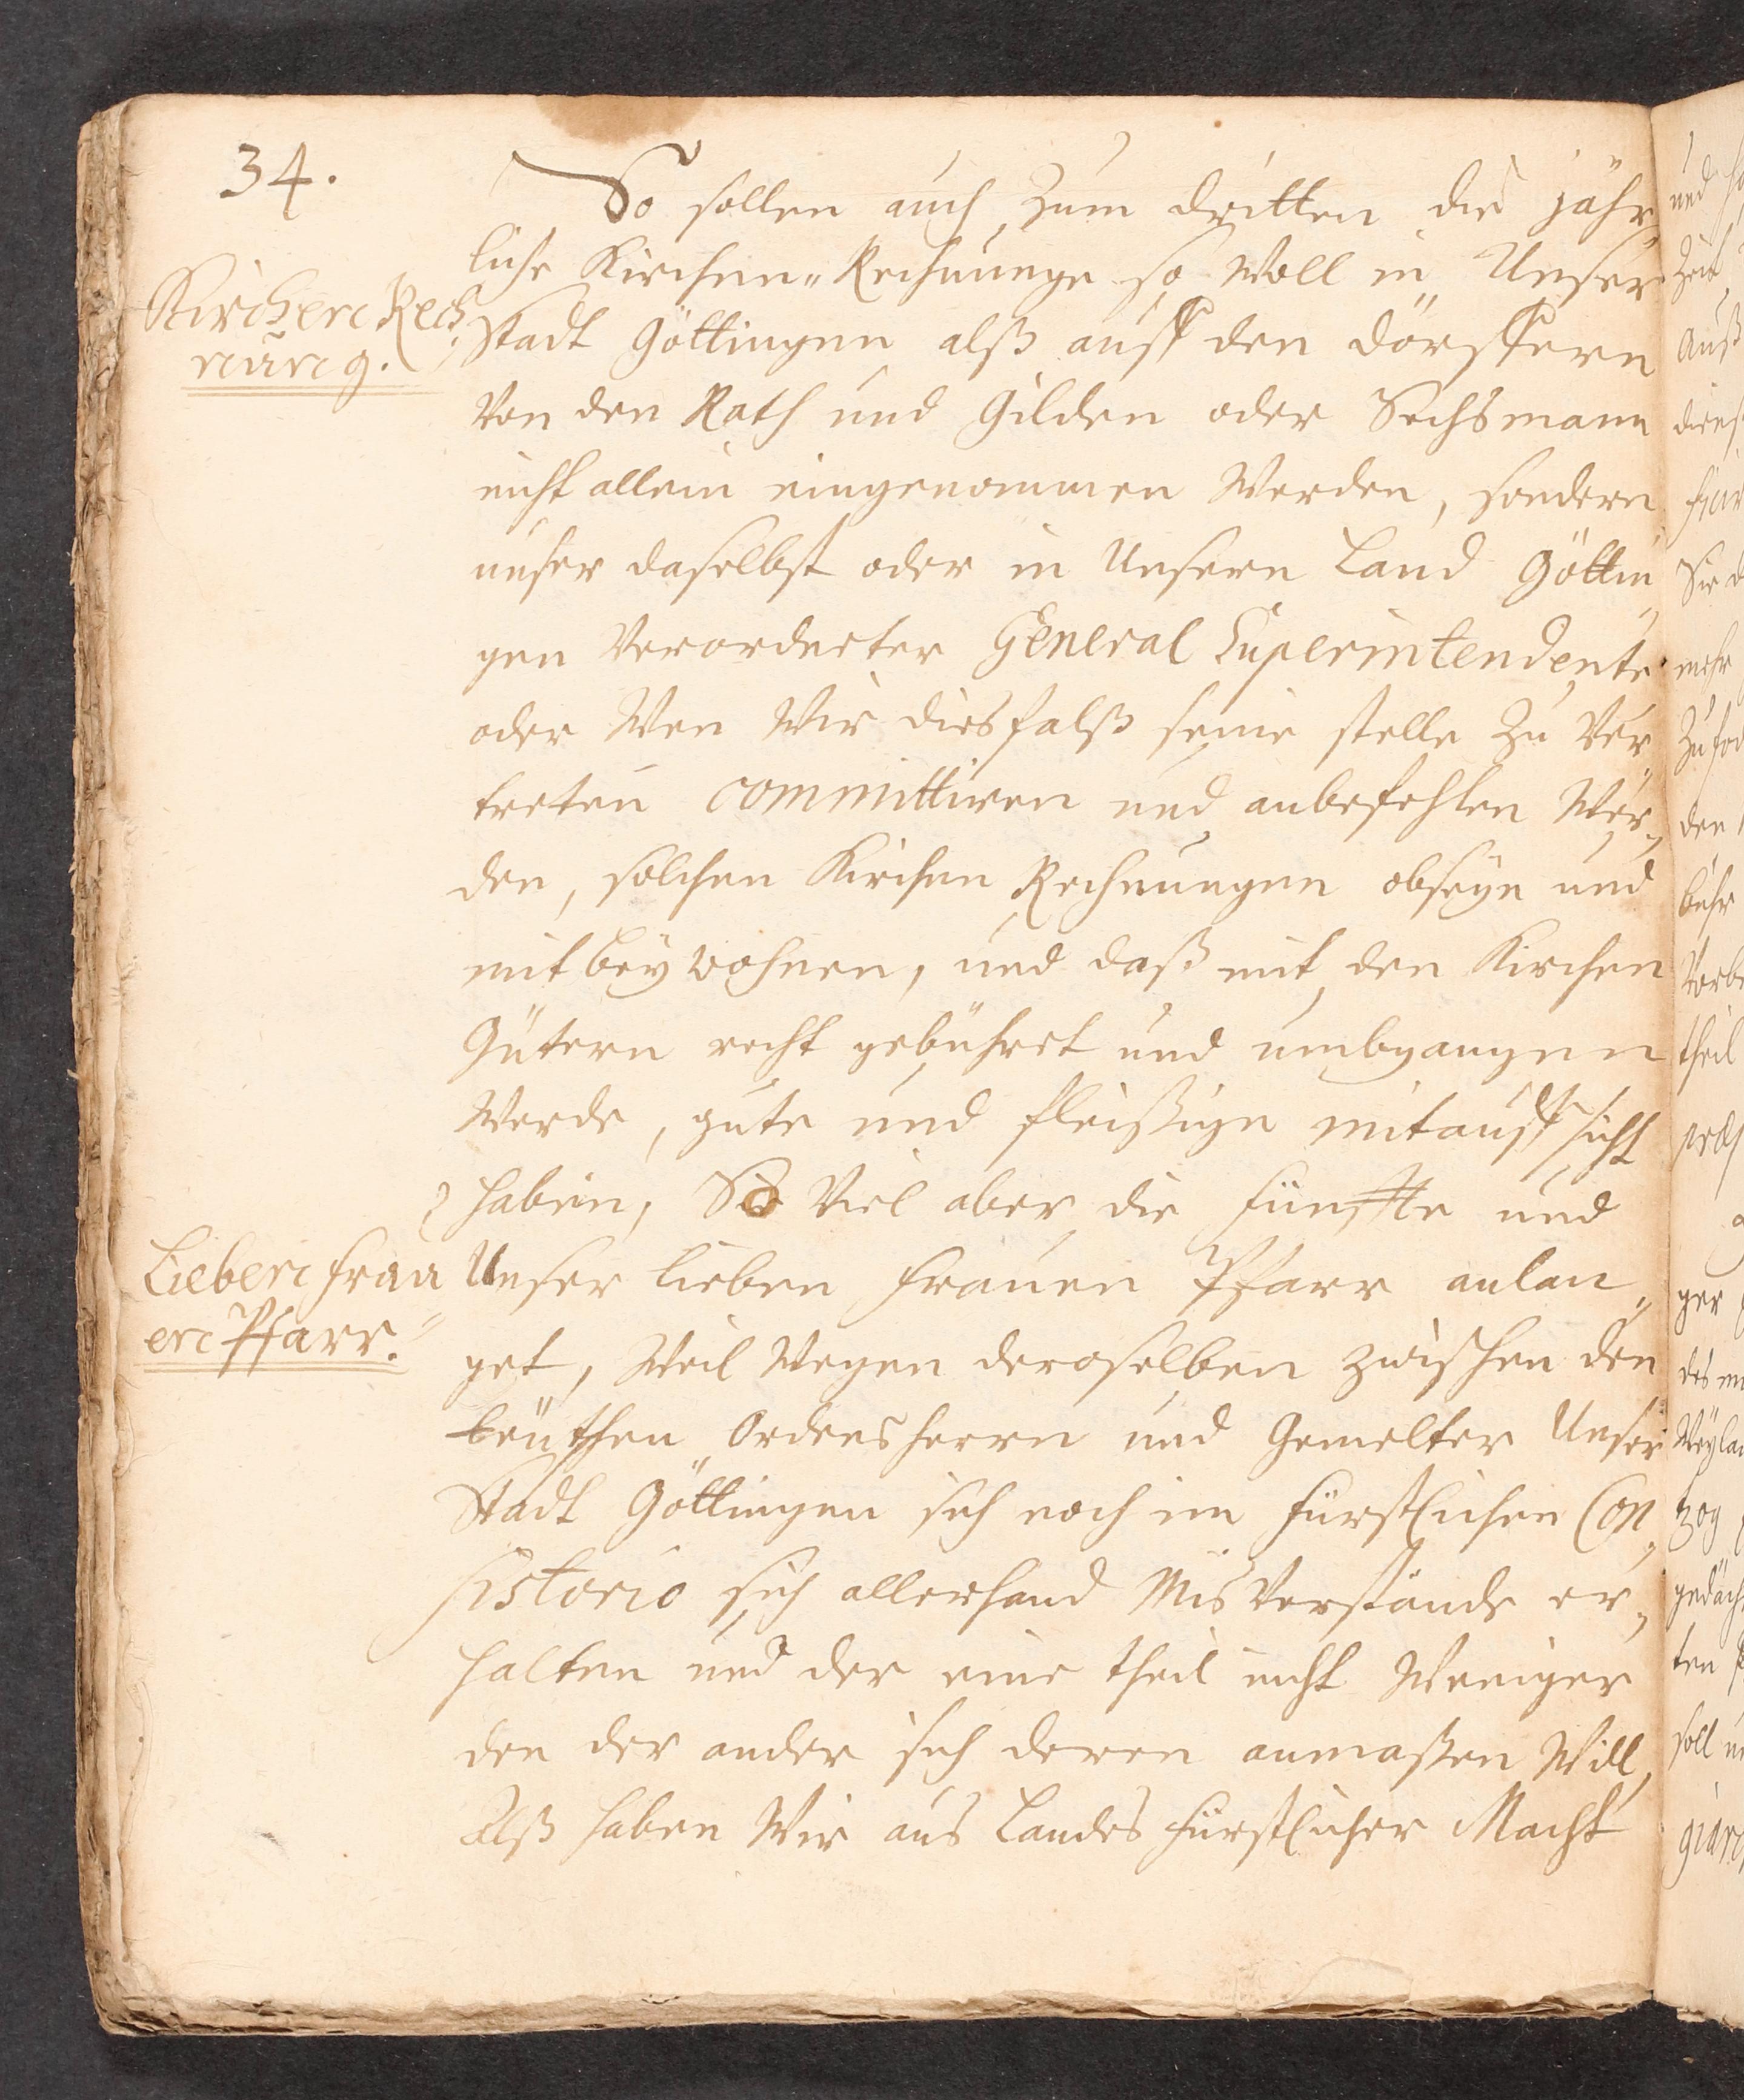 34.
So sollen auch zum dritten die jähr„
liche Kirchen„Rechnunge so Woll in Unser
Kirchen Rech„
nũng.
Stadt Göttingen alß auff den dörffern
Von den Rath und Gilden oder Sechsmann
nicht allein eingenommen Werden, sondern
unser daselbst oder in Unsern Land Göttin„
gen Verordneter General Superintendente
oder Wen Wir diesfalß seine stelle Zu Ver„
treten committiren und anbefehlen Wer„
den, solchen Kirchen Rechnungen obseyn und
mit bey wohnen, und daß mit den Kirchen
Gütern recht gebühret und umbgangen
Werde, gute und fleißige mitauff sicht
haben, So Viel aber die Fünffte und
Lieben Frau
en Pfarr.
Unser lieben Frauen Pfarr anlan„
get, Weil Wegen deroselben zwischen den
teutschen Ordensherrn und Gemelter Unser
Stadt Göttingen sich noch im Fürstlichen Con„
sistorio sich allerhand MisVerstände er„
halten und der eine theil nicht Weniger
den der ander sich deren anmaßen Will,
Alß haben Wir aus Landes Fürstlicher Macht